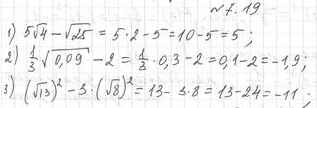 №7.19
1) 5√4 - √25 = 5·2-5=10-5=5;
2) 1/3 √0,09 - 2 = 1/3 · 0,3 - 2 = 0,1-2 = -1,9;
3) (√13)² - 3·(√8)² = 13 - 3·8 = 13-24 = -11;